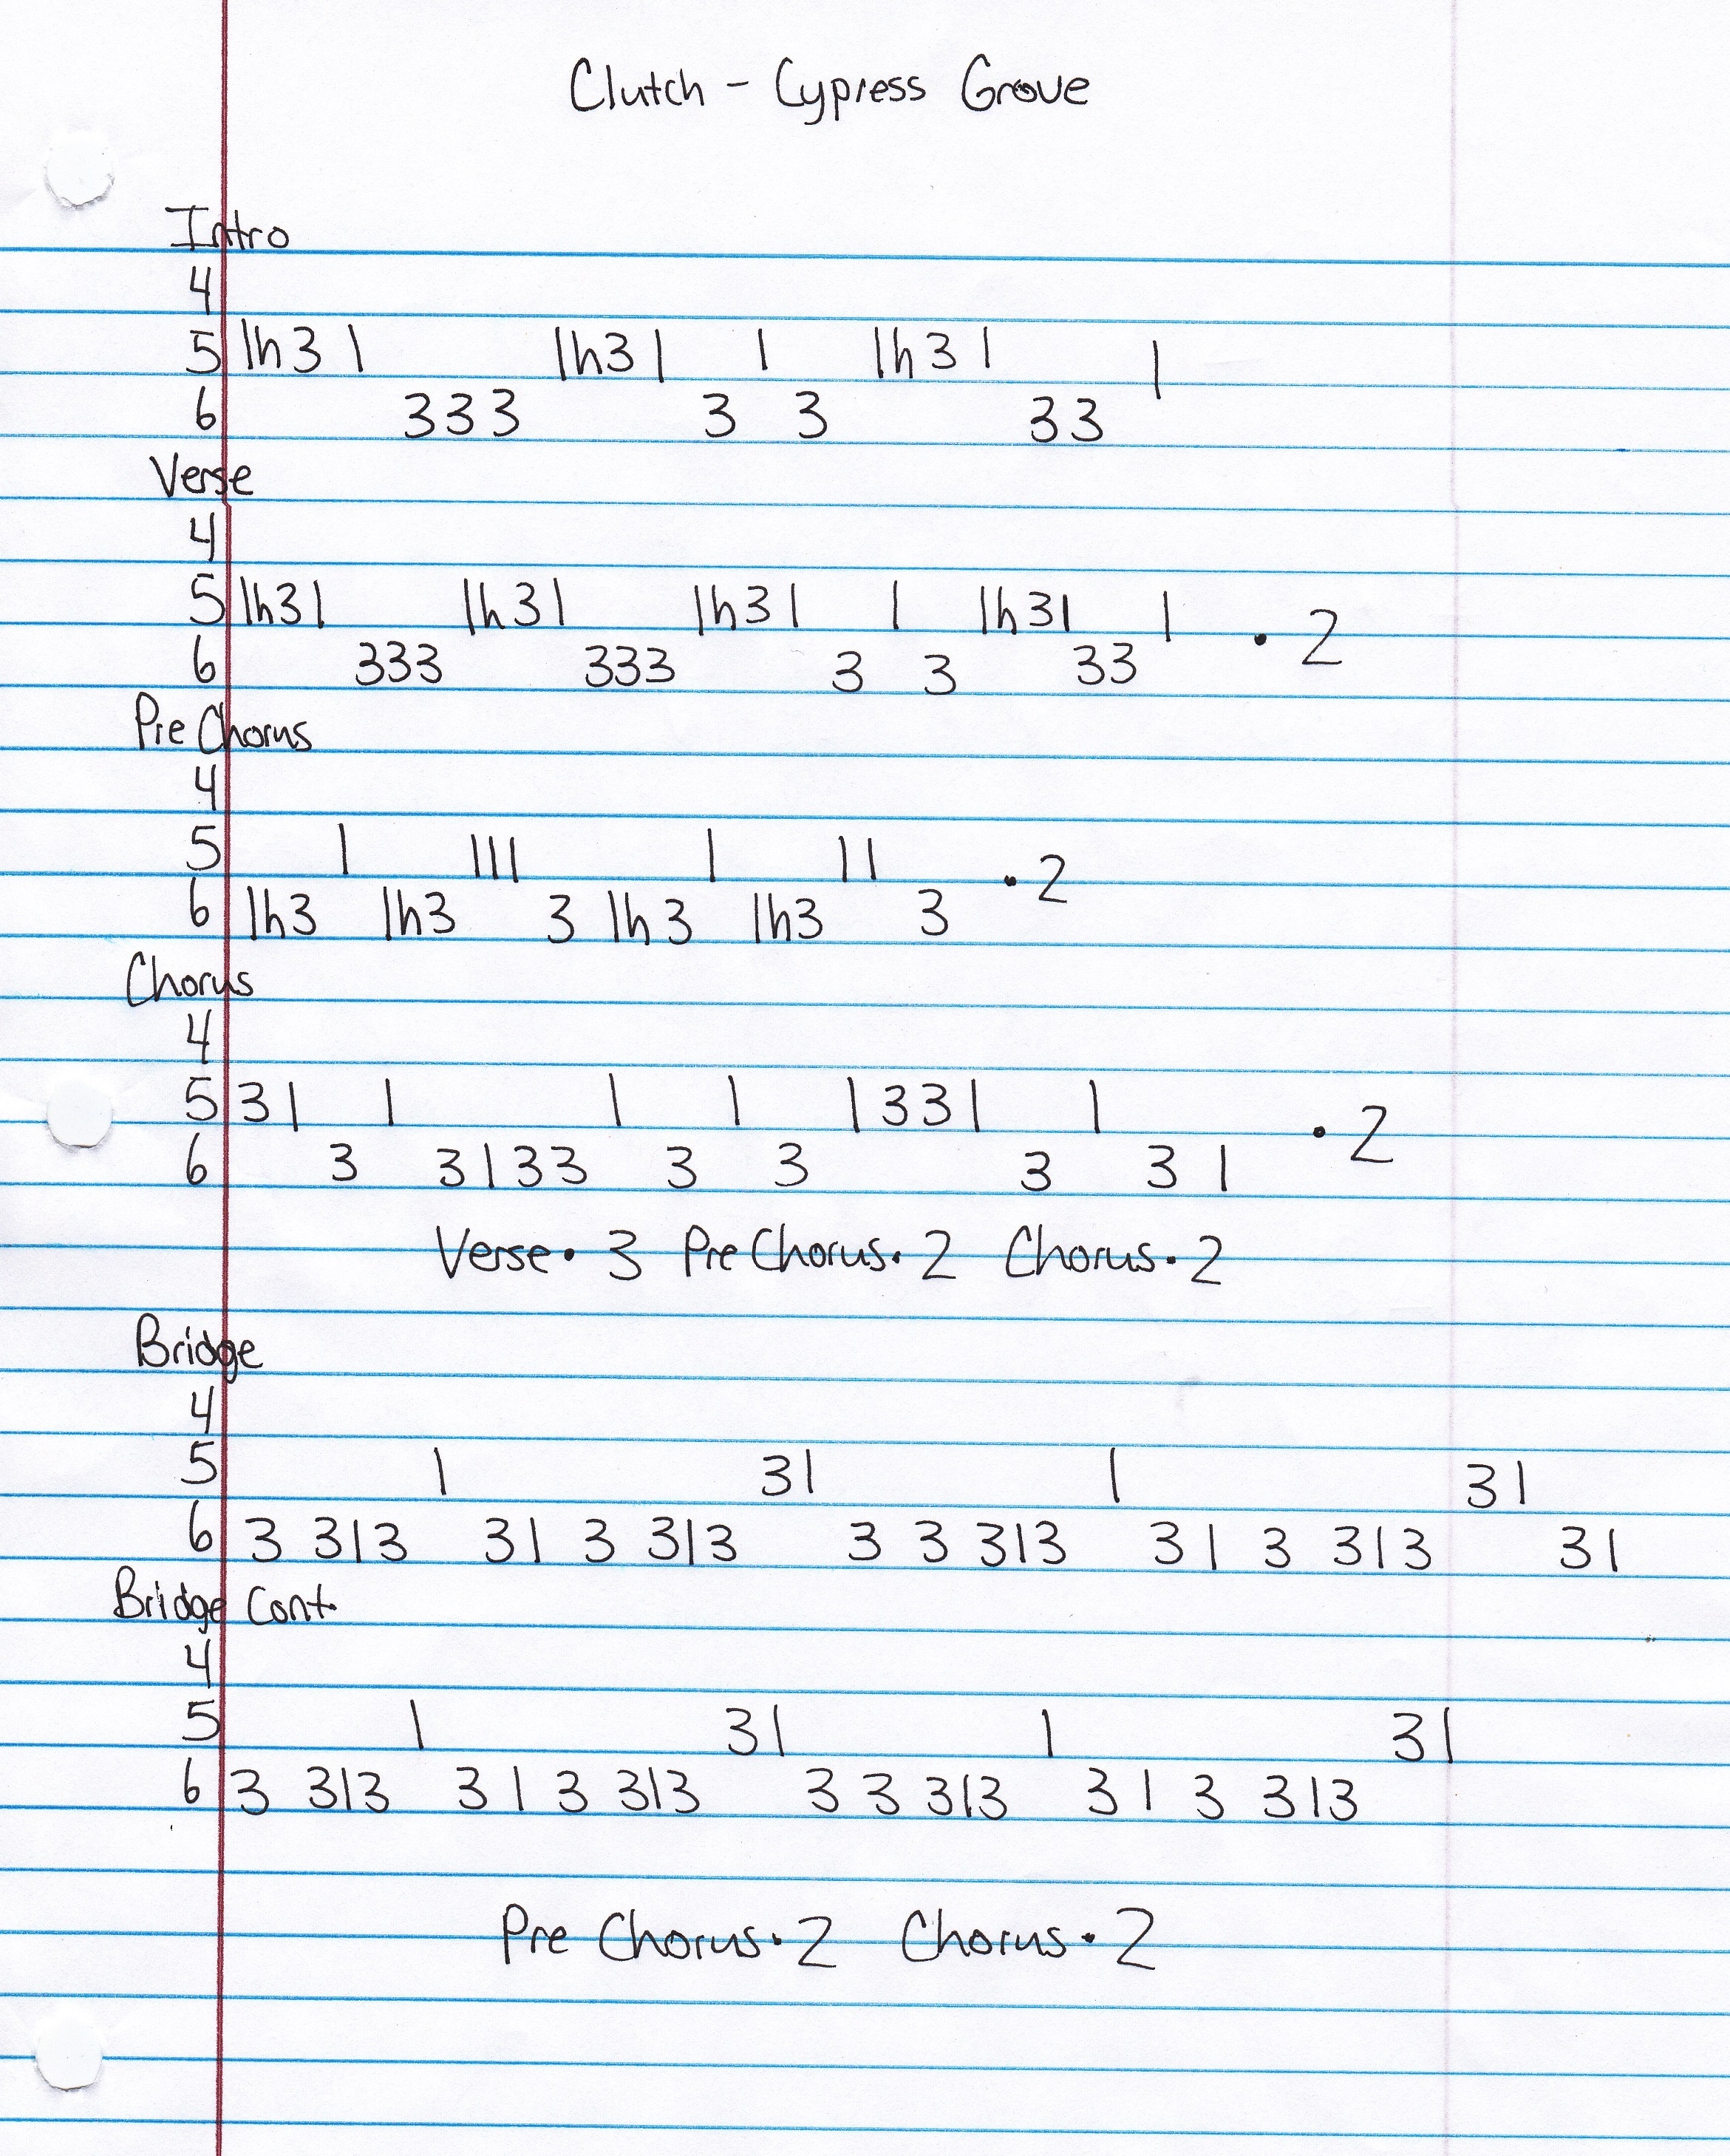 Clutch - Cypress Grove
Intro
4
5 1h31 1h31 1 1h31 1
6 333 3 3 33
Verse
4
5 1h31 1h31 1h31 1 1h31 1 . 2
6 333 333 3 3 33
Pre Chorus
4
5 1 111 1 11 . 2
6 1h3 1h3 3 1h3 1h3 3
Chorus
4
5 31 1 1 1 1331 1 . 2
6 3 3133 3 3 3 31
Verse . 3 Pre Chorus . 2 Chorus . 2
Bridge
4
5 1 31 1 31
6 3 313 31 3 313 3 3 313 31 3 313 31
Bridge Cont.
4
5 1 31 1 31
6 3 313 31 3 313 3 3 313 31 3 313
Pre Chorus . 2 Chorus . 2